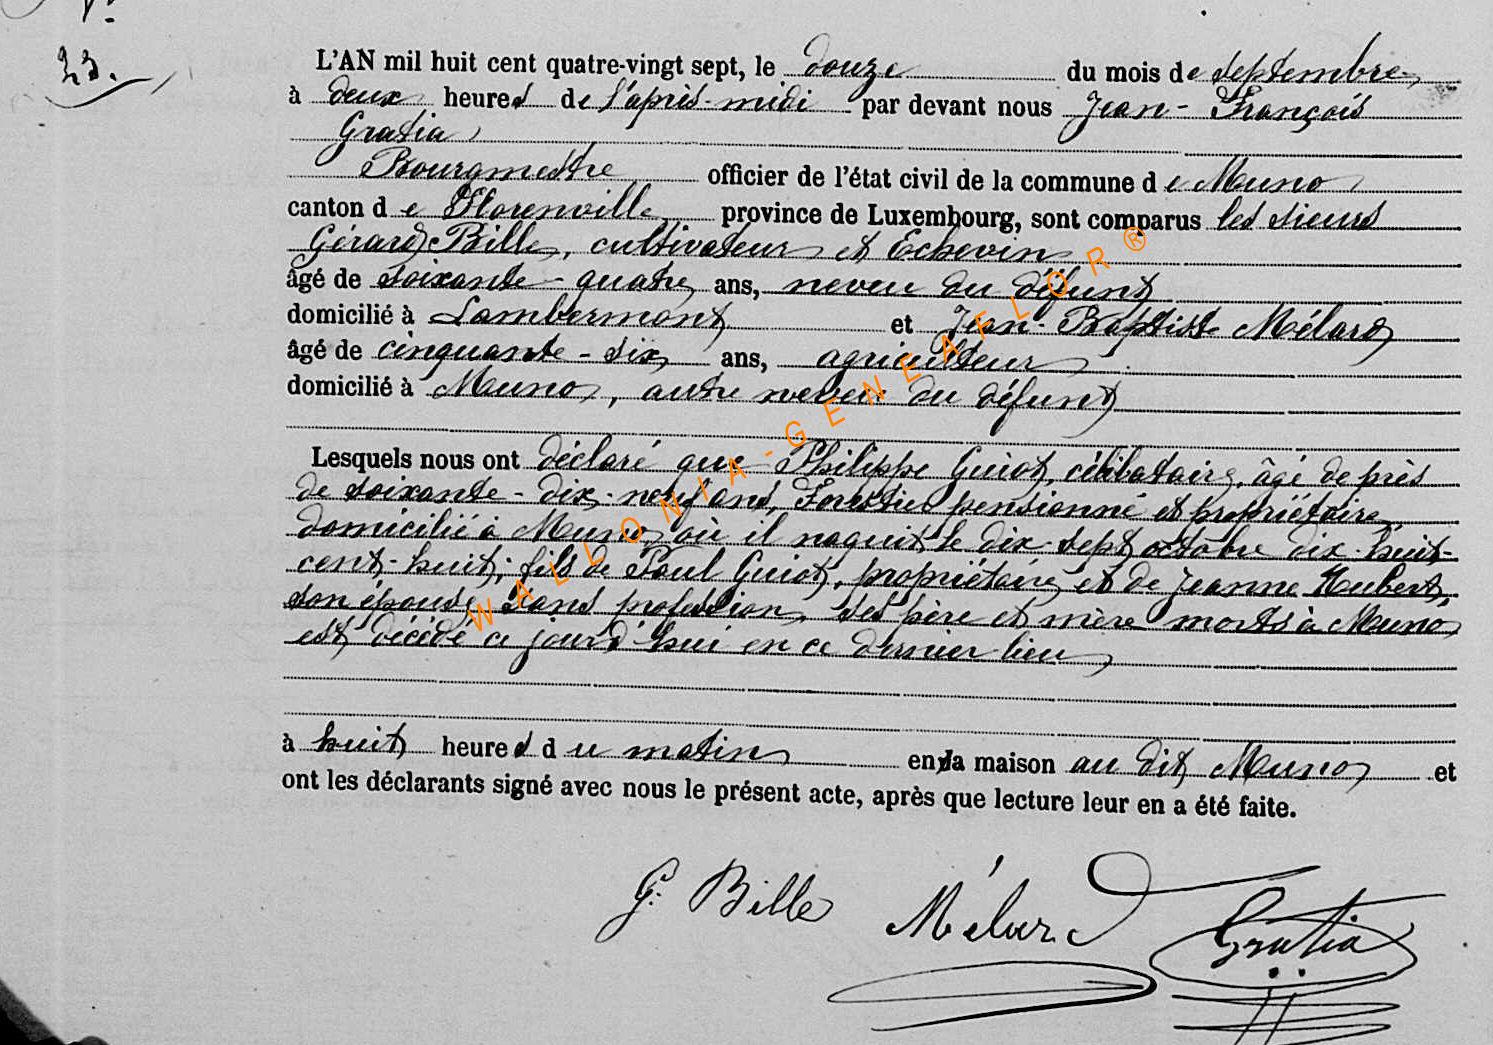 N°
23.
L'AN mil huit cent quatre-vingt sept, le douze du mois de septembre,
à deux heures de l'après-midi par devant nous Jean-François
Gratia,
Bourgmestre officier de l'état civil de la commune de Muno,
canton de Florenville, province de Luxembourg, sont comparus les sieurs
Gérard Bille, cultivateur et Echevin
âgé de soixante-quatre ans, neveu du défunt
domicilié à Lambermont et Jean-Baptiste Mélard
âgé de cinquante-six ans, agriculteur
domicilié à Muno, autre neveu du défunt
Lesquels nous ont déclaré que Philippe Guiot, célibataire, âgé de près
de soixante-dix-neuf ans, Forestier pensionné et propriétaire,
domicilié à Muno, où il naquit le dix-sept octobre dix-huit-
cent-huit; fils de Paul Guiot, propriétaire, et de Jeanne Hubert,
son épouse, sans profession, ses père et mère morts à Muno,
est décédé ce jourd'hui en ce dernier lieu
à huit heures du matin en la maison au dit Muno, et
ont les déclarants signé avec nous le présent acte, après que lecture leur en a été faite.
G. Bille Mélard Gratia
WALLONIA-GENEAFLOR®